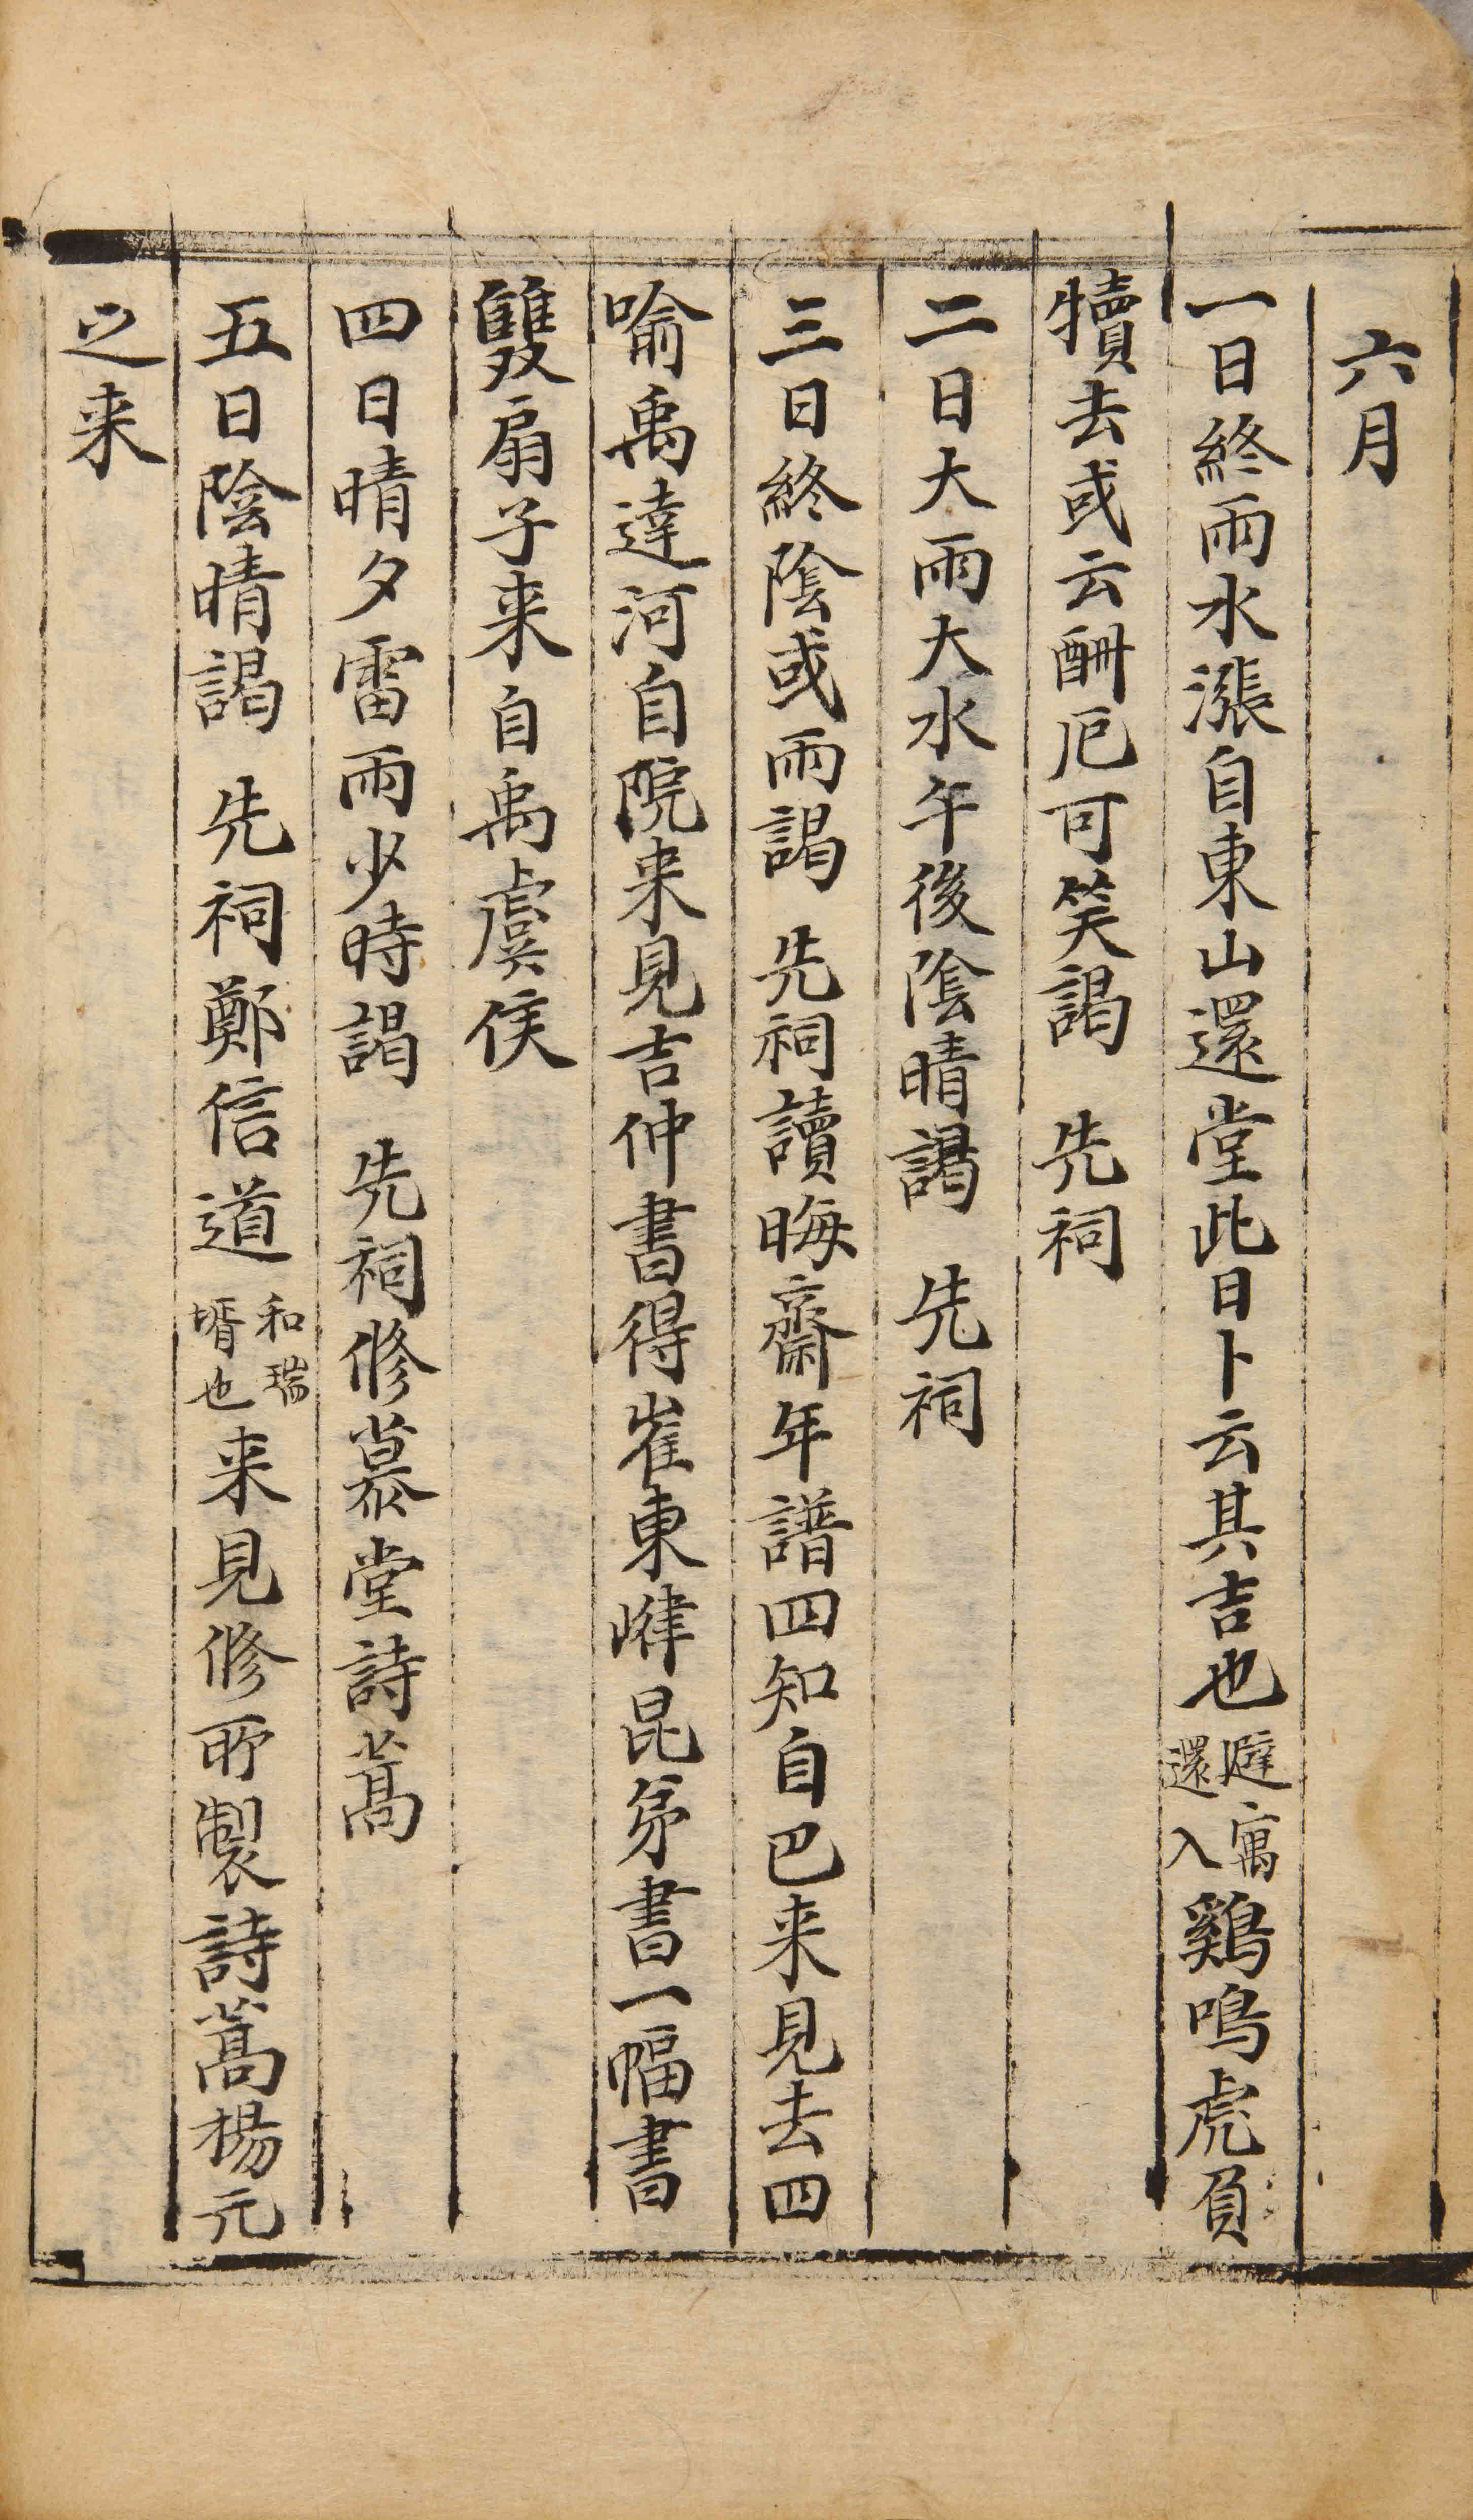 六月
一日終雨水漲自東山還堂此日卜云其吉也避寓還入鷄鳴虎負
犢去或云酬厄可笑謁 先祠
二日大雨大水午後陰晴謁 先祠
三日終陰或雨謁 先祠讀晦齋年譜四知自巴来見去四
喻禹達河自院来見吉仲書得崔東嵂昆弟書一幅書
雙扇子来自禹虞侯
四日晴夕雷雨少時謁 先祠修慕堂詩蒿
五日陰晴謁 先祠鄭信道和瑞壻也来見修所製詩蒿楊元
之来